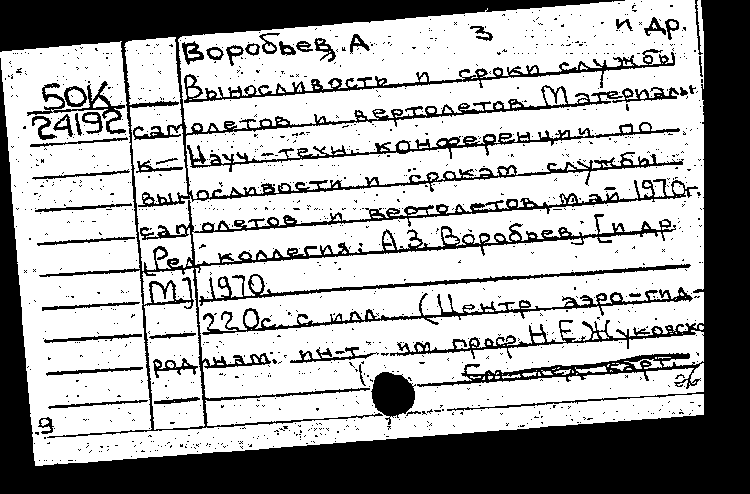 Воробьев, А З и др.
50К
24192
Выносливость и сроки службы
самолетов и вертолетов. Материалы
к- Науч.-техн. конференции по
выносливости и срокам службы
самолетов и вертолетов, май 1970г.
[Ред. коллегия: А.З. Воробьев; [и др.
М], 1970.
220с. с илл. (Центр. аэро-гид-
родинам. ин-т им. проф. Н.Е. Жуковско
См. след. карт.
9